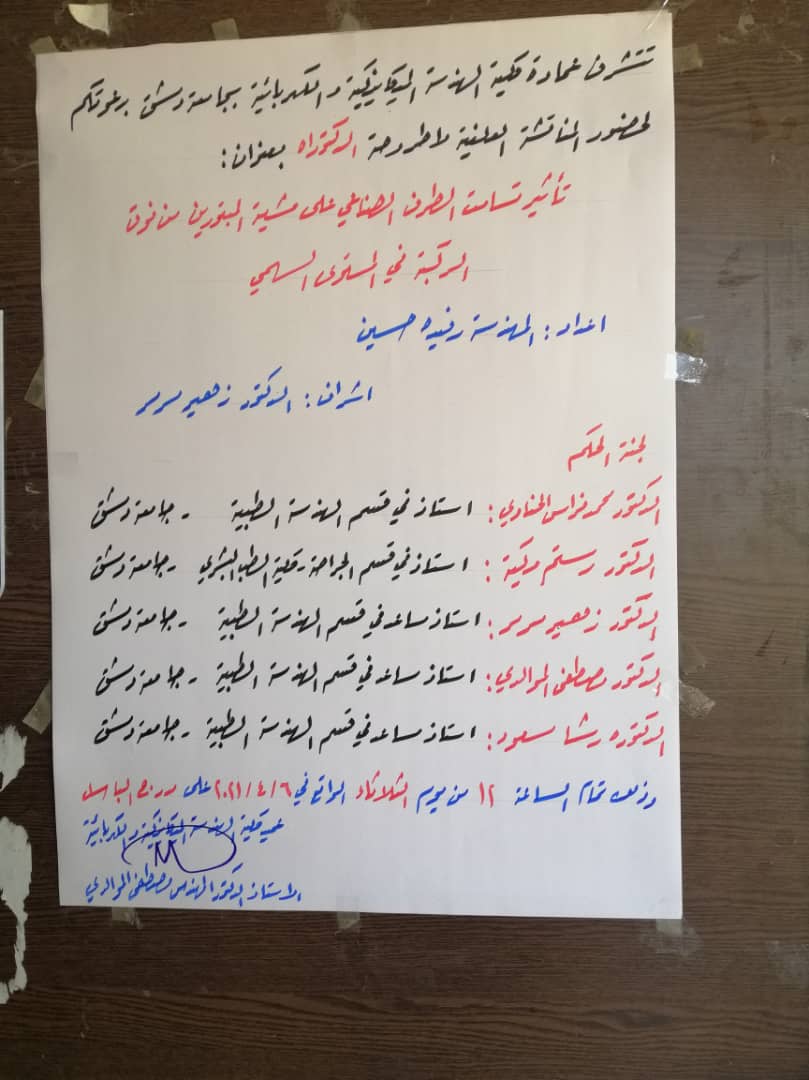 تتشرف عمادة كلية الهندسة الميكانيكية والكهربائية بجامعة دمشق بدعوتكم
لحضور المناقشة العلنية لاطروحة الدكتوراه بعنوان:
تأثير تسامت الطرف الصناعي على مشية المبتورين من فوق
الركبة في المستوى السهمي
اعداد: المهندسة رفيده حسين
اشراف: الدكتور زهير مرمر
لجنة الحكم
الدكتور محمد فراس الحناوي: استاذ في قسم الهندسة الطبية - جامعة دمشق
الدكتور رستم مكية: استاذ في قسم الجراحة - كلية الطب البشري - جامعة دمشق
الدكتور زهير مرمر: استاذ مساعد في قسم الهندسة الطبية - جامعة دمشق
الدكتور مصطفى الموالدي: استاذ مساعد في قسم الهندسة الطبية - جامعة دمشق
الدكتوره رشا مسعود: استاذ مساعد في قسم الهندسة الطبية - جامعة دمشق
وذلك تمام الساعة ١٢ من يوم الثلاثاء الواقع في ٢٠٢١/٤/٦ على مدرج الباسل
عميد كلية الهندسة الميكانيكية والكهربائية
الاستاذ الدكتور المهندس مصطفى الموالدي